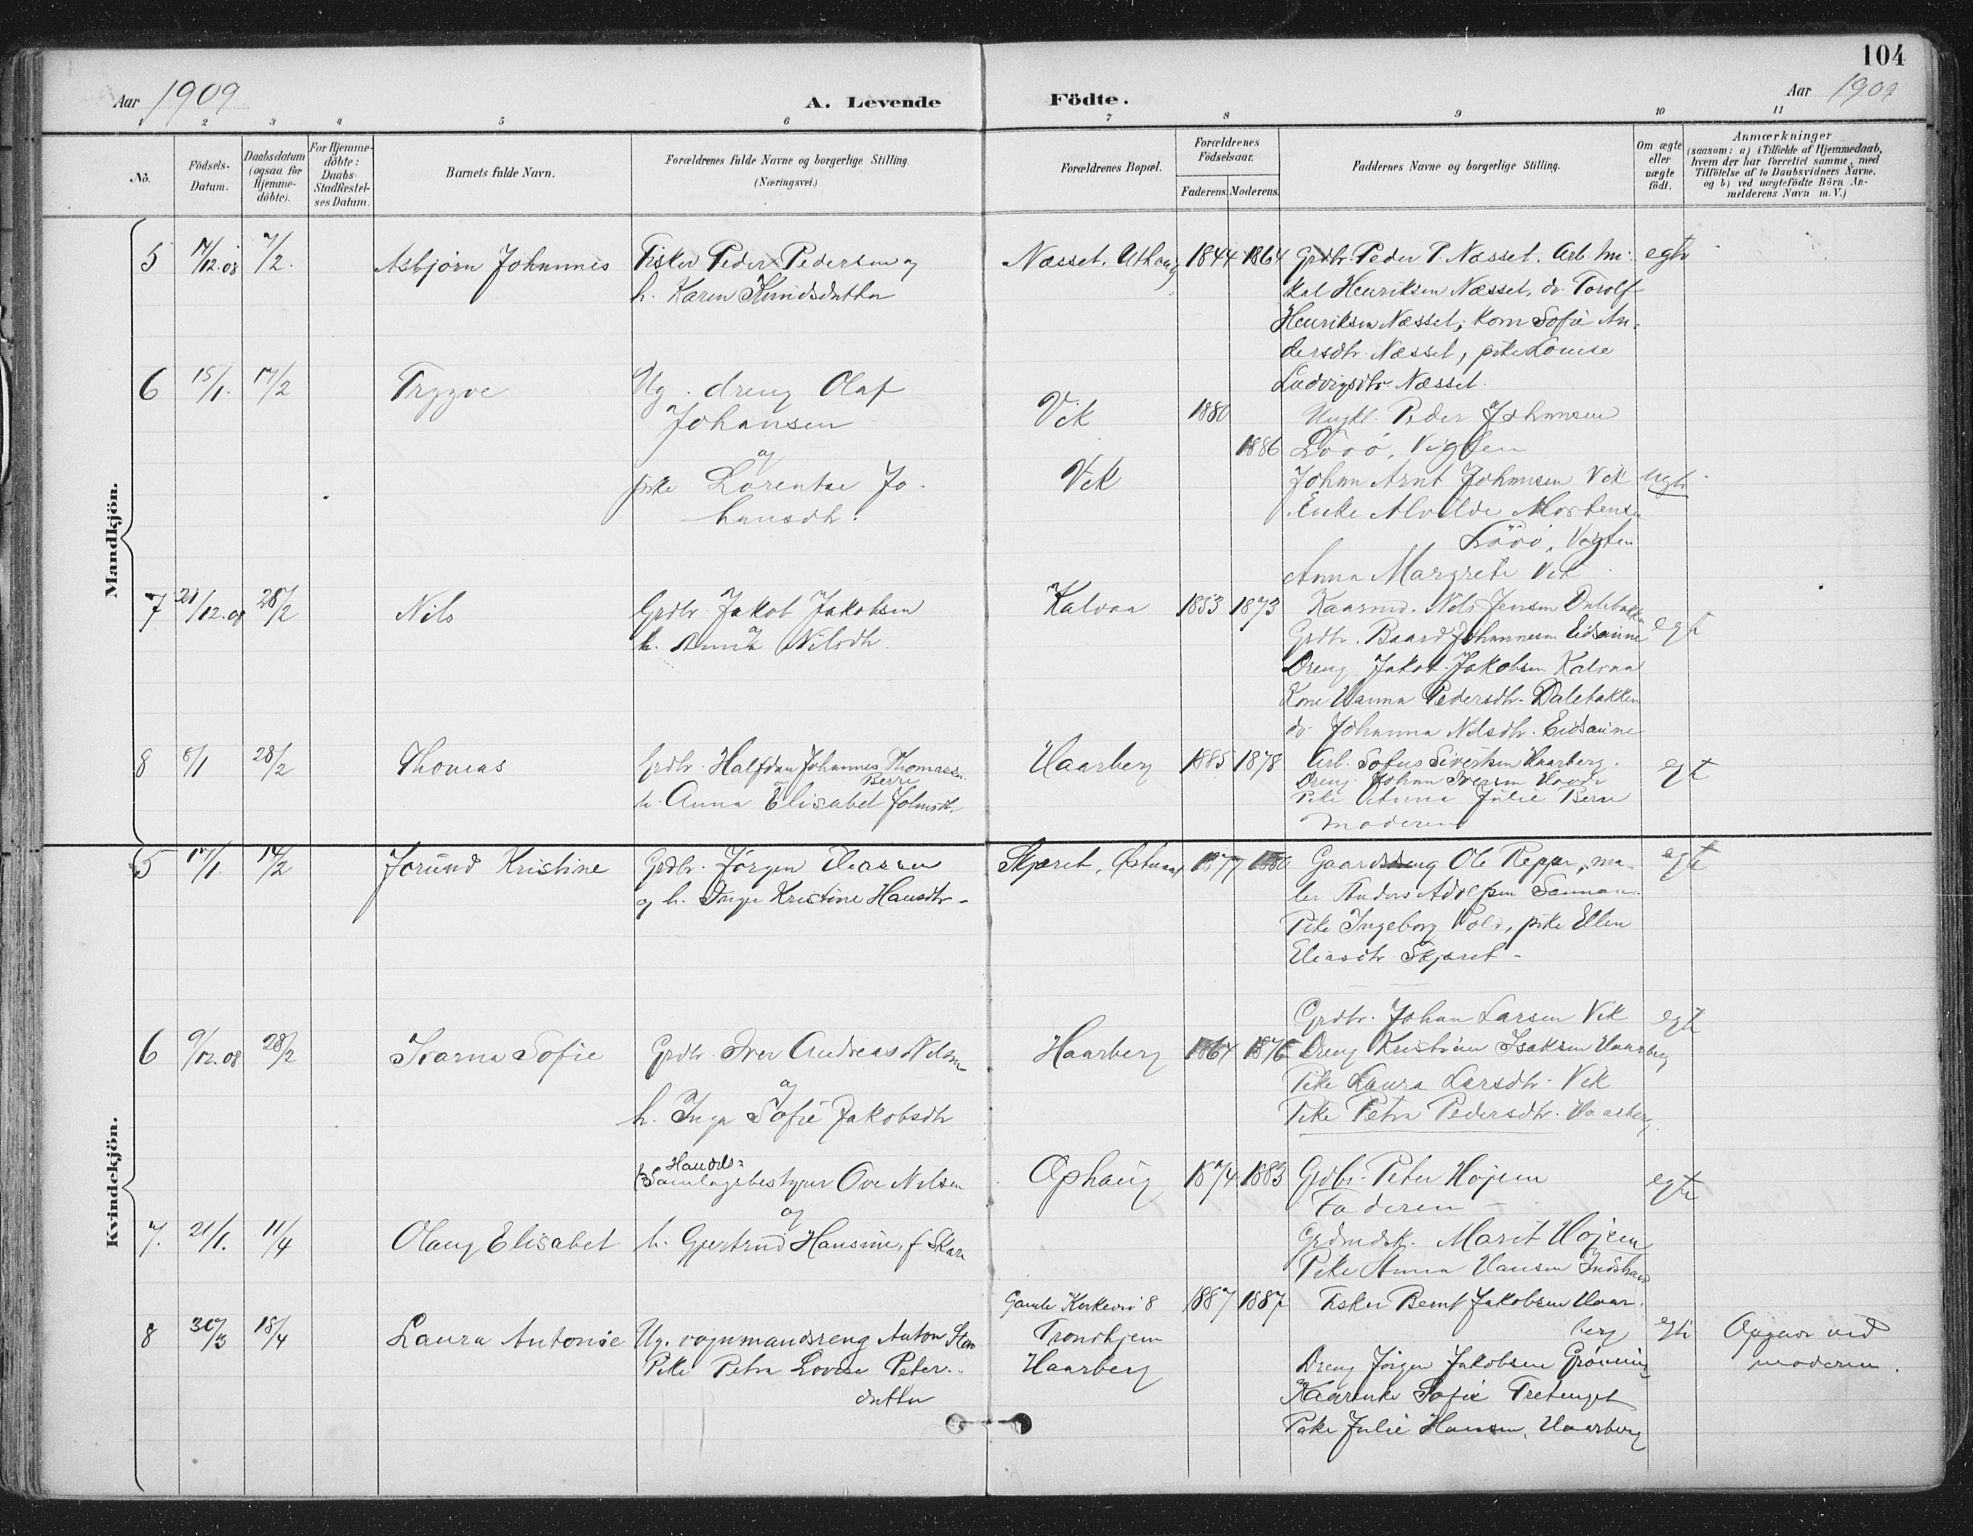 104
Aar 1909
A. Levende Födte.
Aar 1909
1 2 3 4 5 6 7 8 9 10 11
No.
Födsels-
Datum.
Daabsdatum
(ogsaa for
Hjemme-
döbte).
For Hjemme-
döbte:
Daabs-
Stadfæstel-
ses Datum.
Barnets fulde Navn.
Forældrenes fulde Navne og borgerlige Stilling.
(Næringsvei.)
Forældrenes Bopæl.
Forældrenes
Födselsaar.
Faderens. Moderens.
Faddernes Navne og borgerlige Stilling.
Om ægte
eller
uægte
födt.
Anmærkninger
(saasom: a) i Tilfælde af Hjemmedaab,
hvem der har forrettet samme, med
Tilföielse af to Daabsvidners Navne,
og b) ved uægtefödte Börn An-
melderens Navn m. V.)
Mandkjön.
5 17/12.08 7/2. Asbjörn Johannes
Fisker Peder Pedersen og
h. Karen Knudsdatter
Næsset, Uthaug 1844 1864
Grdbr. Peder P. Næsset. Arb. Mi-
kal Henriksen Næsset, dr. Torolf
Henriksen Næsset, kone Sofie An-
dersdtr. Næsset, pike Louise
Ludvigsdtr. Næsset.
egte
6 15/1. 17/2 Trygve
Ug. dreng Olaf
Johansen
og
pike Lorentse Jo-
hansdtr.
Vik 1880
Vik 1886
Ungkl. Peder Johansen
Lövö, Vigten
Johan Arnt Johansen Vik
Enke Alvilde Mortensen
Lövö, Vigten
Anna Margrete Vik
uegte
7 21/12.08 28/2 Nils
Grdbr. Jakob Jakobsen
og
h. Anna Nilsdtr.
Kalvaa 1853 1873
Kaarmd. Nils Jensen Dalebakken
Grdbr. Baard Johannesen Eidsaune
Dreng Jakob Jakobsen Kalvaa
Kone Hanna Pedersdtr. Dalebakken
do Johanna Nilsdtr. Eidsaune
egte
8 8/1 28/2 Thomas
Grdbr. Halfdan Johannes Thomassen
Berre
h. Anna Elisabet Johnsdtr
Haarberg 1885 1878
Arb. Sofus Sivertsen Haarberg.
Dreng Johan Iversen Hovde
Pike Anna Julie Berre
Moderen
egte
Kvindekjön.
5 17/1. 14/2 Jorund Kristine
Grdbr. Jörgen Eliassen
og h. Inga Kristine Hansdtr.
Skjæret, Östraat 1877 1880
Gaardsdreng Ole Reppe, ma-
ler Anders Adolfsen
Pike Ingeborg Vold, pike Ellen
Eliasdtr. Skjæret
egte
6 9/12.08 28/2 Karna Sofie
Grdbr. Iver Andreas Nilsen
og
h. Inga Sofie Jakobsdtr
Haarberg 1864 1876
Grdbr. Johan Larsen Vik
Dreng Kristian Isaksen Haarberg
Pike Laura Larsdtr. Vik
Pike Petra Pedersdtr. Haarberg.
egte
7. 21/1. 11/4 Olaug Elisabet
Handels-
Samlagsbestyrer Ove Nilsen
og
h. Gjertrud Hansine, f. Skare
Ophaug 1874 1883
Grdbr. Peter Höjem
Faderen
Grdmdsk. Marit Höjem
Pike Anna Hansen
egte
8 30/3 18/4 Laura Antonie
Ug. vognmandsdreng Anton Sten
Pike Petra Lovise Peter-
datter
Gamle Kirkevei 8
Trondhjem
Haarberg
1887 1887
Fisker Bernt Jakobsen Haar-
berg
Dreng Jörgen Jakobsen Gröning
Kaarenke Sofie Tretenget
Pike Julie Hansen, Haarberg
Opgaver ved
moderen.